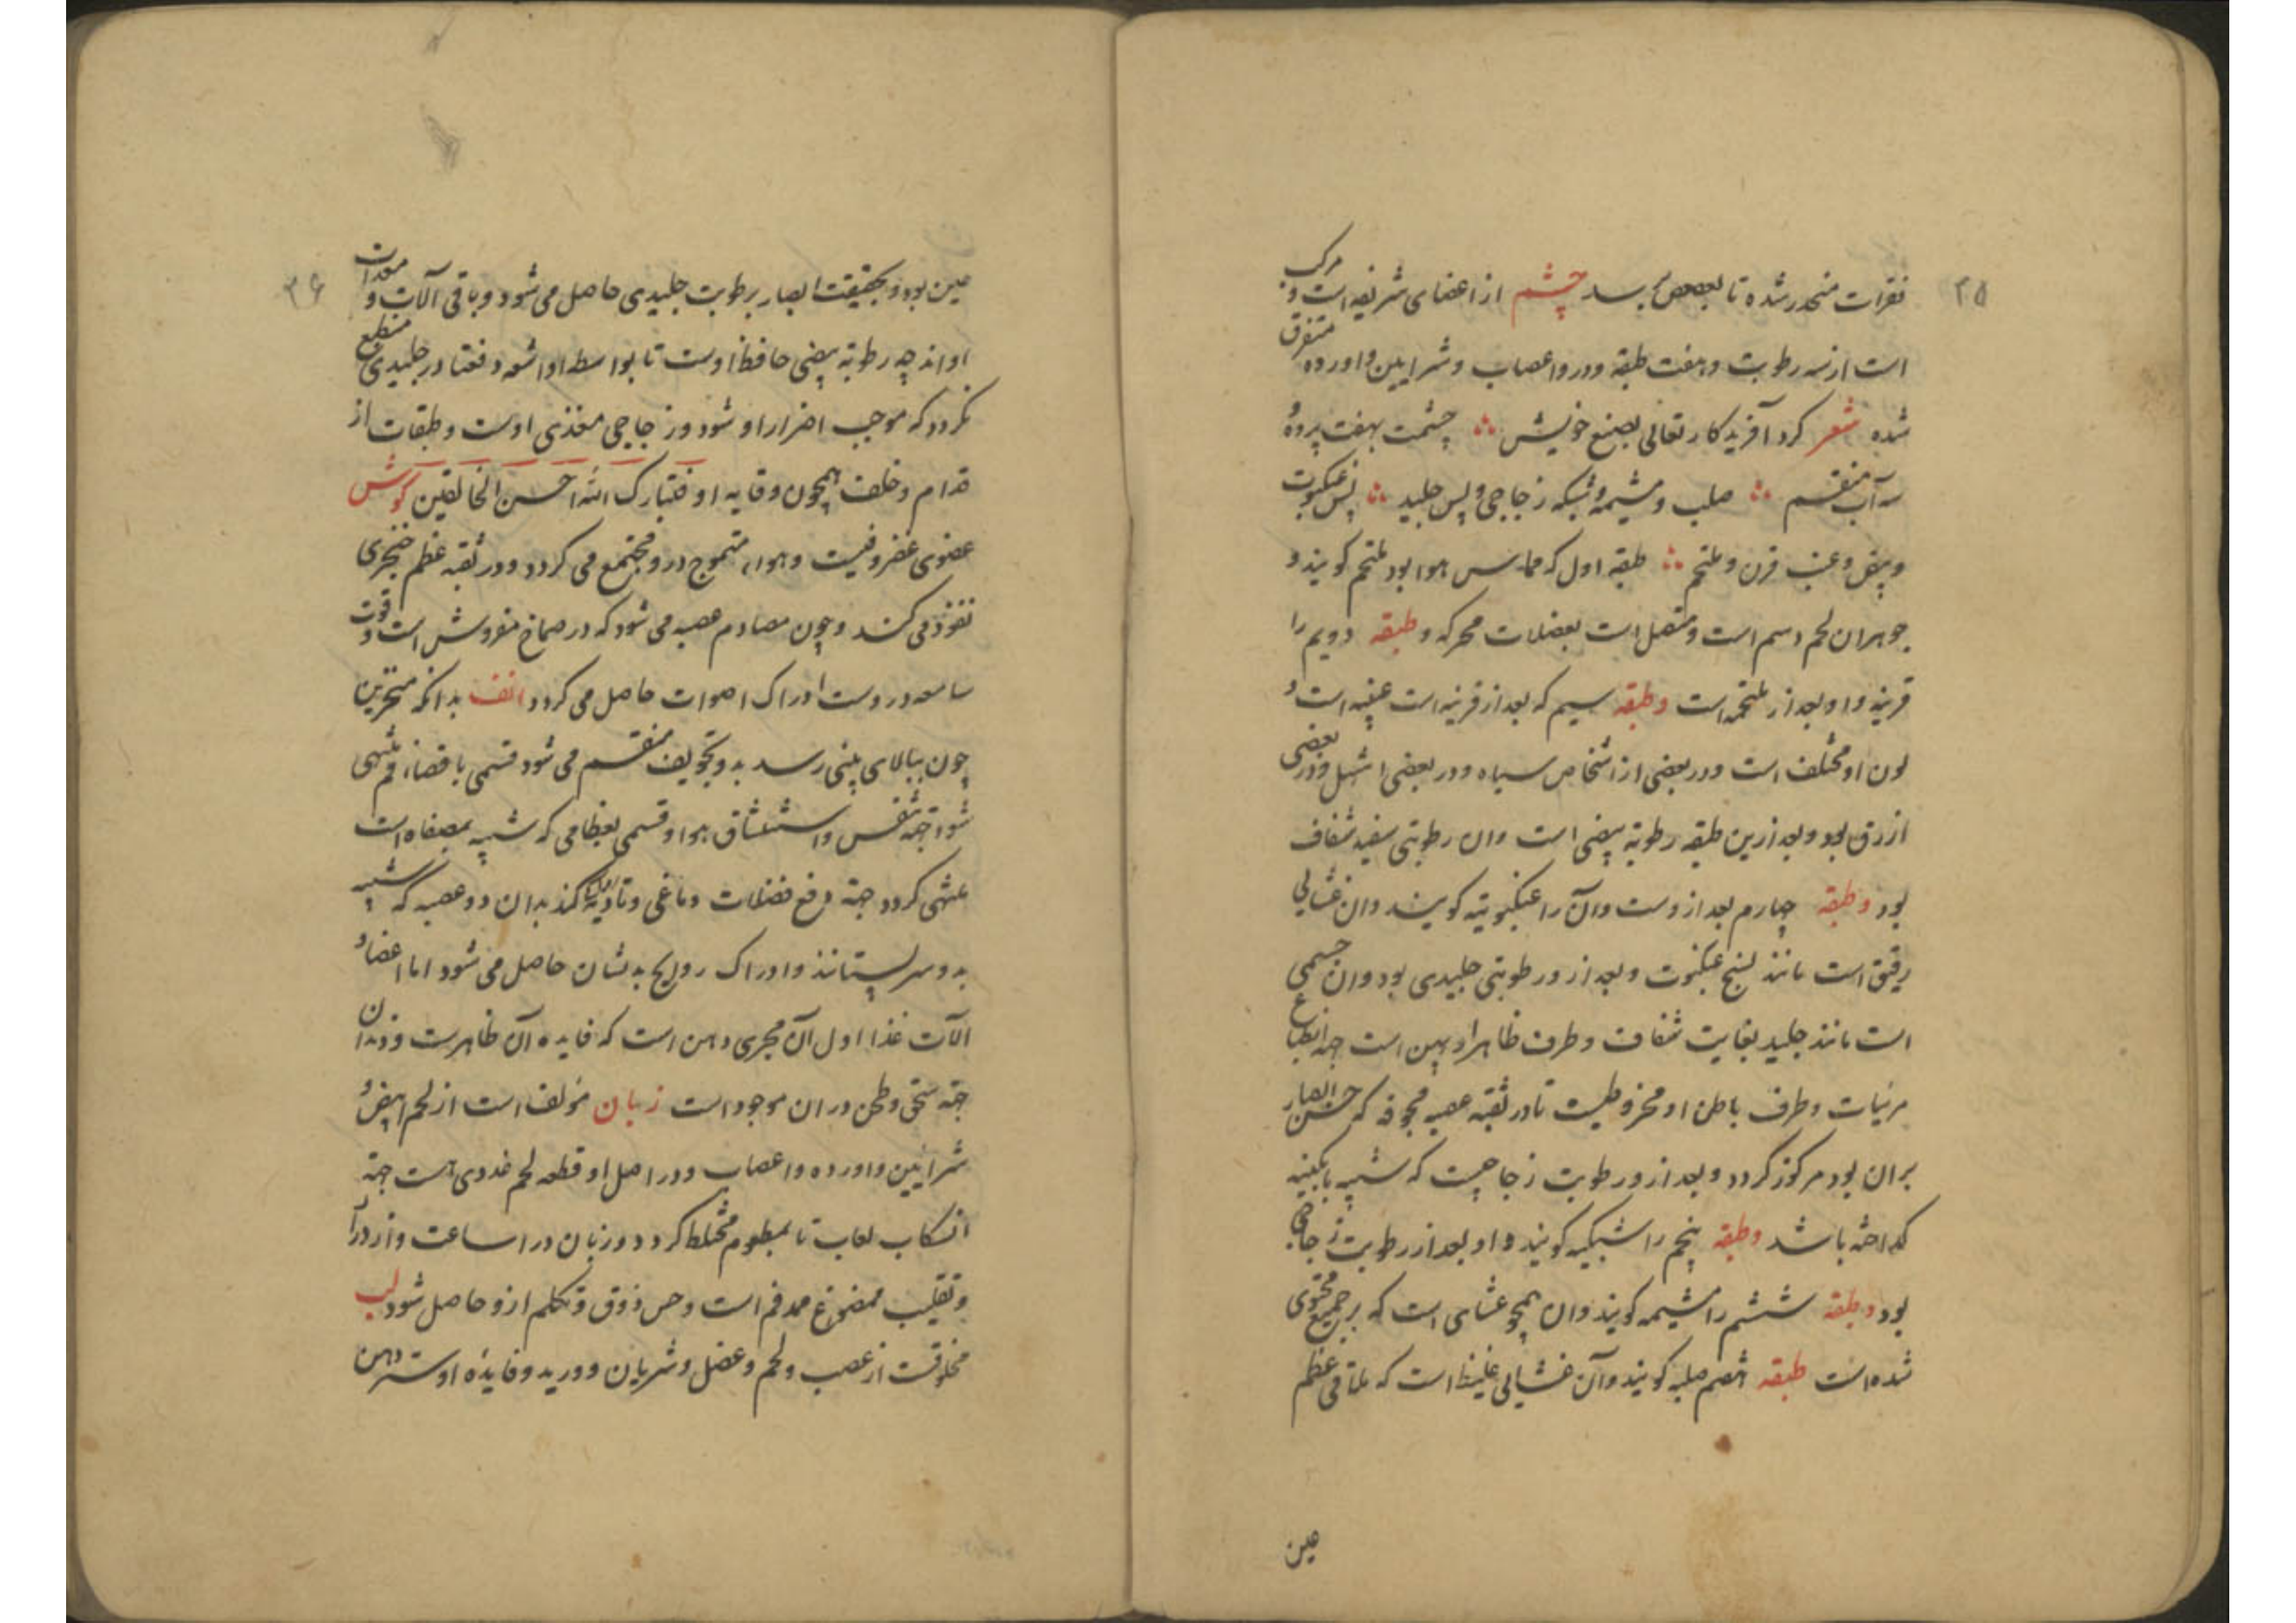 ۳۵
فقرات منحدر شده تا بعصعص برسد چشم از اعضای شریفه است و مرکب
است از سه رطوبت و هفت طبقه و درو اعصاب و شرایین و اورده متفرق
شده شعر کرد آفریدکار تعالی بصنع خویش چشمت بهفت پرده و
سه آب منقسم صلب و مشیمه و شبکه زجاجی و پس جلید پس عنکبوت
و بیض و عنب قرن و ملتحم طبقه اول که مماس هوا بود ملتحم کویند و
جوهر ان لحم دسم است و متصل است بعضلات محرکه و طبقه دویم را
قرنیه و او بعد از ملتحمه است و طبقه سیم که بعد از قرنیه است عنبیه است و
لون او مختلف است و در بعضی از اشخاص سیاه و در بعضی اشهل و در بعضی
ازرق بود و بعد ازین طبقه رطوبة بیضی است و ان رطوبتی سفید شفاف
بود و طبقه چهارم بعد ازوست و آن را عنکبوتیه کویند و ان غشایی
رقیق است مانند نسج عنکبوت و بعد ازو رطوبتی جلیدی بود و ان جسمی
است مانند جلید بغایت شفاف و طرف ظاهر او پهن است جهة انطباع
مرئیات و طرف باطن او مخروطیست تا در ثقبه عصبه مجوفه که حس ابصار
بران بود مرکوز کردد و بعد ازو رطوبت زجاجیست که شبیه بابکینه
کداخته باشد و طبقه پنجم را شبکیه کویند و او بعد از رطوبت زجاجی
بود و طبقه ششم را مشیمه کویند و ان همچو غشای است که بر جمیع محتوی
شده است طبقه هفتم صلبه کویند و آن غشایی غلیظ است که ملاقی عظم
عین
۳۶
عین بود و بحقیقت ابصار برطوبت جلیدی حاصل می شود و باقی آلات و معدات
او اند چه رطوبة بیضی حافظ اوست تا بواسطه او اشعه دفعتا در جلیدی منطبع
نکردد که موجب اضرار او شود و زجاجی مغذی اوست و طبقات از
قدام و خلف همچون وقایه او فتبارک الله احسن الخالقین کوش
عضوی غضروفیست و هواء متموج درو مجتمع می کردد و در ثقبه عظم حجری
نفوذ می کند و چون مصادم عصبه می شود که در صماخ مفروش است و قوت
سامعه دروست ادراک اصوات حاصل می کردد انف بدانکه منخرین
چون ببالای بینی رسد بدو تجویف منقسم می شود قسمی باقصاء فم منتهی
شود جهة تنفس و استنشاق هوا و قسمی بعظامی که شبیه بمصفاه است
منتهی کردد جهة دفع فضلات دماغی و تادیه کند بدان دو عصبه که شبیه
بدو سر پستانند و ادراک روایح بدیشان حاصل می شود اما اعضا و
آلات غذا اول آن مجری دهن است که فایده آن ظاهرست و دندان
جهة سحق و طحن دران موجود است زبان مؤلف است از لحم ابیض و
شرایین و اورده و اعصاب و در اصل او قطعه لحم غددی هست جهة
انسکاب لعاب تا بمطعوم مختلط کردد و زبان در اساعت و ازدراد
و تقلیب ممضوغ ممد فم است و حس ذوق و تکلم ازو حاصل شود لب
مخلوقست از عصب و لحم و عضل و شریان و ورید و فایده او ستر دهن